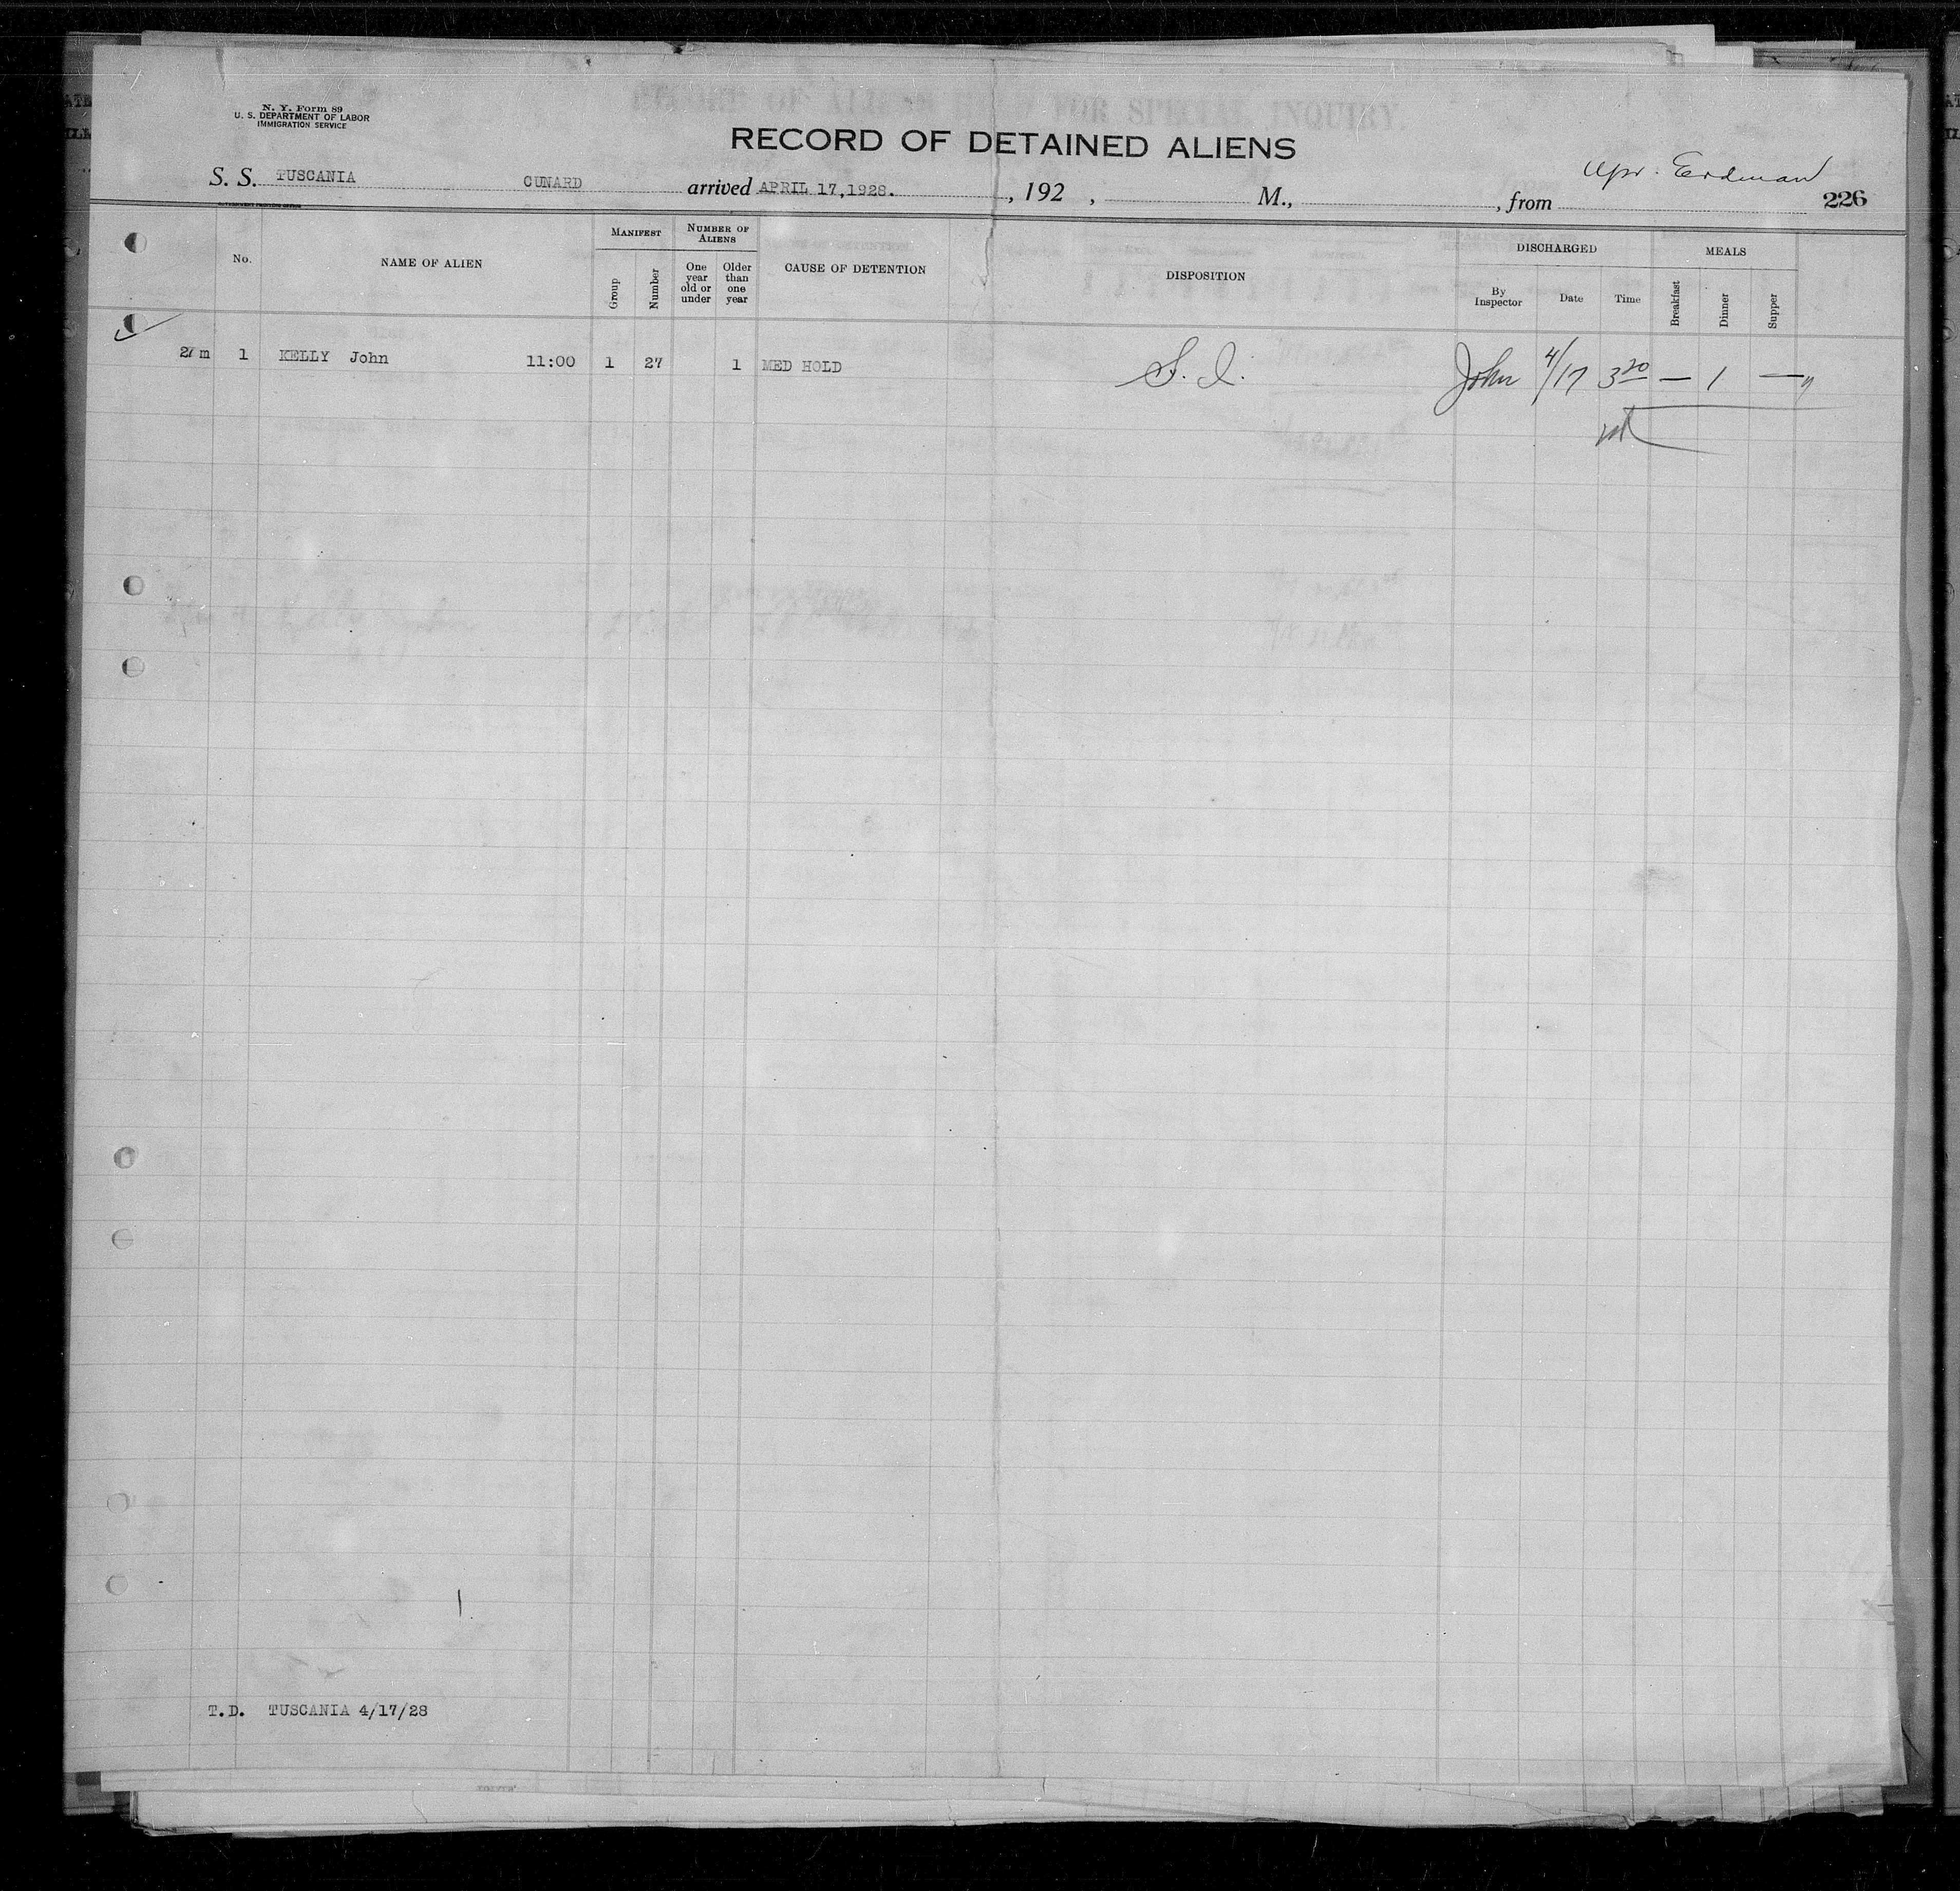 N. Y. Form 89
U. S. DEPARTMENT OF LABOR
IMMIGRATION SERVICE
RECORD OF ALIENS FOR SPECIAL INQUIRY.
RECORD OF DETAINED ALIENS
S. S. TUSCANIA CUNARD arrived APRIL 17,1928. , 192 , M., , from Erdman 226
GOVERNMENT PRINTING OFFICE
No. NAME OF ALIEN MANIFEST Group Number NUMBER OF ALIENS One year old or under Older than one year CAUSE OF DETENTION DISPOSITION DISCHARGED By Inspector Date Time MEALS Breakfast Dinner Supper
27m 1 KELLY John 11:00 1 27 1 MED HOLD S. I. John 4/17 3 20 — 1 —
1
T.D. TUSCANIA 4/17/28